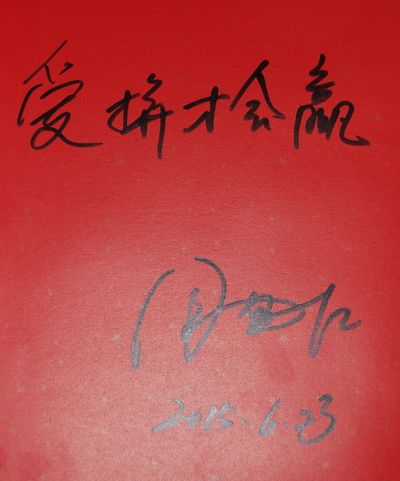 爱拼才会赢
2015.6.23